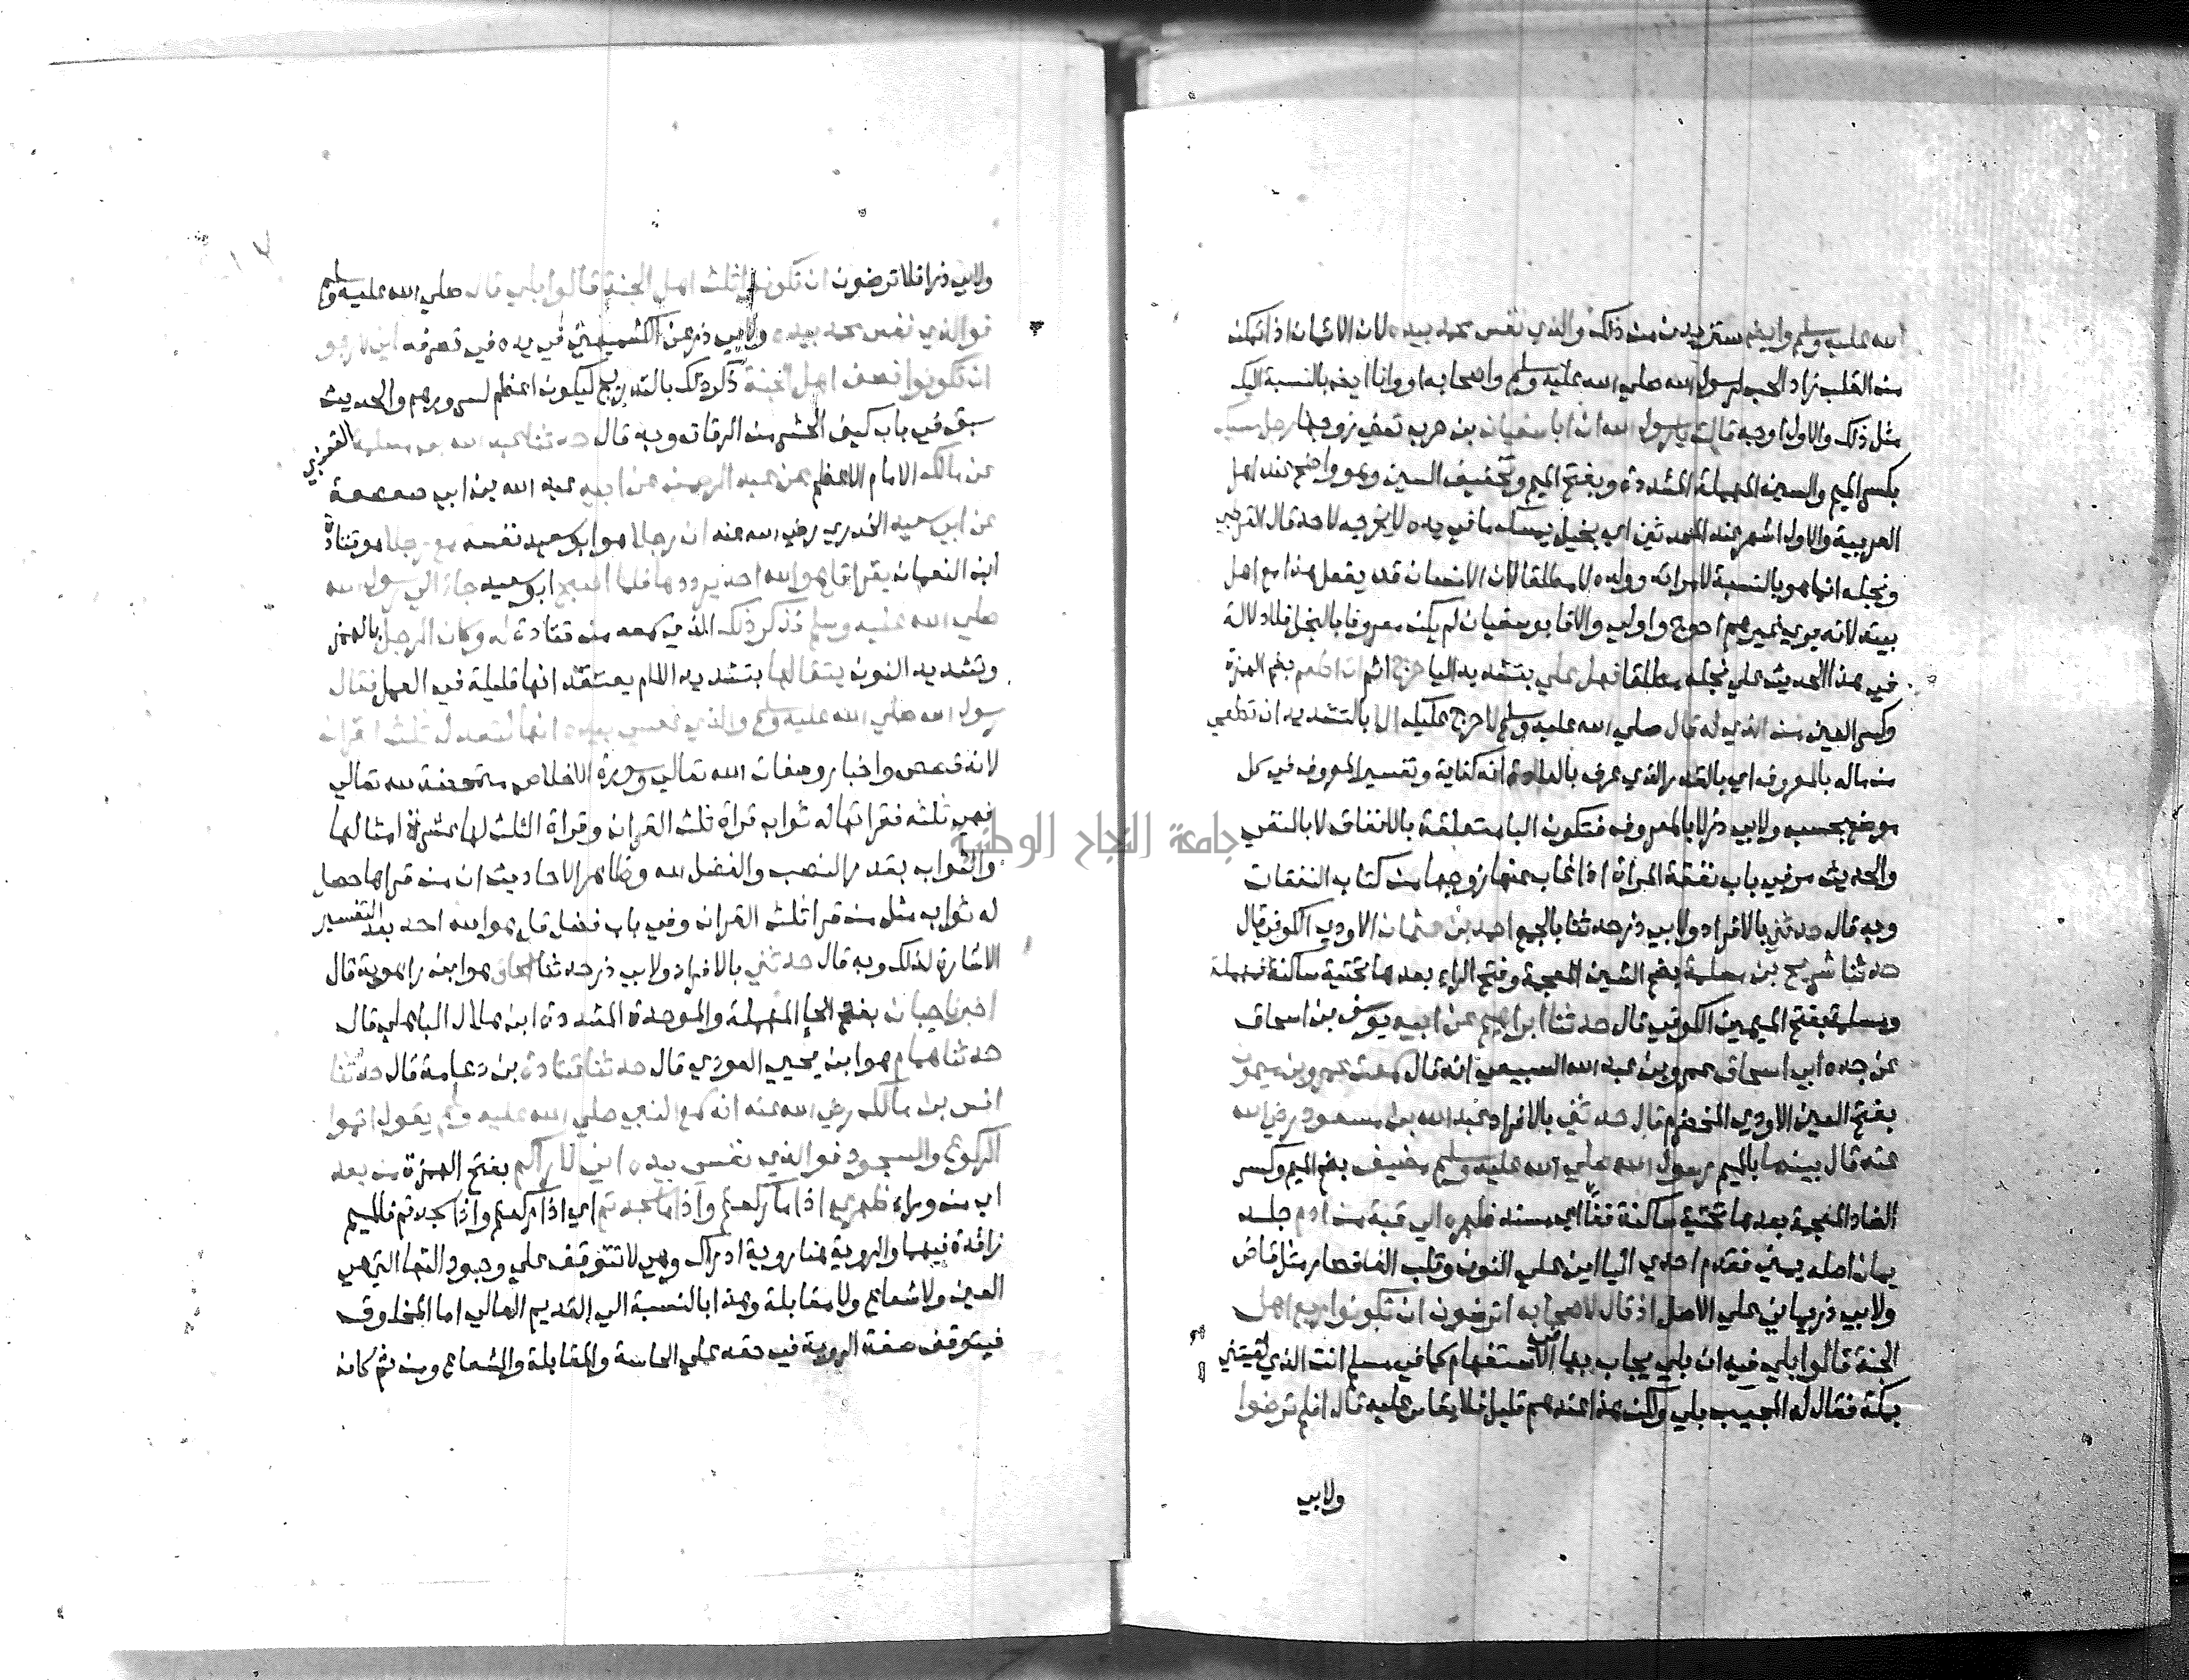 الله عليه وسلم وايضا ستزيدين من ذلك والذي نفس محمد بيده لان الايمان اذا تمكن
من القلب زاد الحب لرسول الله صلي الله عليه وسلم واصحابه او وانا ايضا بالنسبة اليك
مثل ذلك والاول اوجه قالت يا رسول الله ان ابا سفيان بن حرب تعني زوجها رجل مسيك
بكسر الميم والسين المهملة المشددة وبفتح الميم وتخفيف السين وهو واضح عند اهل
العربية والاول اشهر عند المحدثين اي بخيل يمسك ما في يده لا يخرجه لاحد قال القرطبي
وبخله انما هو بالنسبة لامراته وولده لا مطلقا لان الانسان قد يفعل هذا مع اهل
بيته لانه يري غيرهم احوج واولي والا فابو سفيان لم يكن معروفا بالبخل فلا دلالة
في هذا الحديث علي بخله مطلقا فهل علي بتشديد اليا حرج اثم ان اطعم بضم الهمزة
وكسر العين من الذي له قال صلي الله عليه وسلم لا حرج عليك الا بالتشديد ان تطعمي
من ماله بالمعروف اي بالقدر الذي عرف بالعادة انه كفاية وتفسير المعروف في كل
موضع بحسبه ولابي ذر لا بالمعروف فتكون البا متعلقة بالانفاق لا بالنفي
والحديث مر في باب نفقة المراة اذا غاب عنها زوجها من كتاب النفقات
وبه قال حدثني بالافراد ولابي ذر حدثنا بالجمع احمد بن عثمان الاودي الكوفي قال
حدثنا شريح بن مسلمة بضم الشين المعجمة وفتح الراء بعدها تحتية ساكنة فمهملة
ومسلمة بفتح الميمين الكوفي قال حدثنا ابراهيم عن ابيه يوسف بن اسحاق
عن جده ابي اسحاق عمرو بن عبد الله السبيعي انه قال سمعت عمرو بن ميمون
بفتح العين الاودي المخضرم قال حدثني بالافراد عبد الله بن مسعود رضي الله
عنه قال بينما بالميم رسول الله صلي الله عليه وسلم مضيف بضم الميم وكسر
الضاد المعجمة بعدها تحتية ساكنة ففا اي مسند ظهره الي قبة من ادم جلد
يمان اصله يمني فقدم احدي اليا اين علي النون وقلب الفا فصار مثل قاض
ولابي ذر يماني علي الاصل اذ قال لاصحابه اترضون ان تكونوا ربع اهل
الجنة قالوا بلي فيه ان بلي يجاب بها الاستفهام كما في مسلم انت الذي لقيتني
بمكة فقال له المجيب بلي ولكن هذا عندهم قليل فلا يقاس عليه قال افلم ترضوا
ولابي
ولابي ذر افلا ترضون ان تكونوا ثلث اهل الجنة قالوا بلي قال صلي الله عليه وسلم
فوالذي نفس محمد بيده ولابي ذر عن الكشميهني في يده في تصرفه اني لارجو
ان تكونوا نصف اهل الجنة ذكر ذلك بالتدريج ليكون اعظم لسرورهم والحديث
سبق في باب كيف الحشر من الرقاق وبه قال حدثنا عبد الله بن مسلمة القعنبي
عن مالك الامام الاعظم عن عبد الرحمن عن ابيه عبد الله بن ابي صعصعة
عن ابي سعيد الخدري رضي الله عنه ان رجلا هو ابو سعيد نفسه سمع رجلا هو قتادة
ابن النعمان يقرا قل هو الله احد يرددها فلما اصبح ابو سعيد جاء الي رسول الله
صلي الله عليه وسلم فذكر ذلك الذي سمعه من قتادة له وكان الرجل بالهمز
وتشديد النون يتقالها بتشديد اللام يعتقد انها قليلة في العمل فقال
رسول الله صلي الله عليه وسلم والذي نفسي بيده انها لتعدل ثلث القران
لانه قصص واخبار وصفات الله تعالي وسورة الاخلاص متمحضة لله تعالي
فهي ثلثه فقراتها له ثواب قراة ثلث القران وقراة الثلث لها عشرة امثالها
والثواب بقدر النصب والفضل لله وظاهر الاحاديث ان من قراها حصل
له ثواب مثل من قرا ثلث القران وفي باب فضل قل هو الله احد بعد التفسير
الاشارة لذلك وبه قال حدثني بالافراد ولابي ذر حدثنا اسحاق هو ابن راهويه قال
اخبرنا حبان بفتح الحا المهملة والموحدة المشددة ابن هلال الباهلي قال
حدثنا همام هو ابن يحيي العوذي قال حدثنا قتادة بن دعامة قال حدثنا
انس بن مالك رضي الله عنه انه سمع النبي صلي الله عليه وسلم يقول اتموا
الركوع والسجود فوالذي نفسي بيده اني لاراكم بفتح الهمزة من بعد
اي من وراء ظهري اذا ما ركعتم واذا ما سجدتم اي اذا ركعتم واذا سجدتم فالميم
زائدة فيهما والروية هنا روية ادراك وهي لا تتوقف علي وجود التها التي هي
العين ولا شعاع ولا مقابلة وهذا بالنسبة الي القديم العالي اما المخلوق
فيتوقف صفة الروية في حقه علي الحاسة والمقابلة والشعاع ومن ثم كان
جامعة النجاح الوطنية